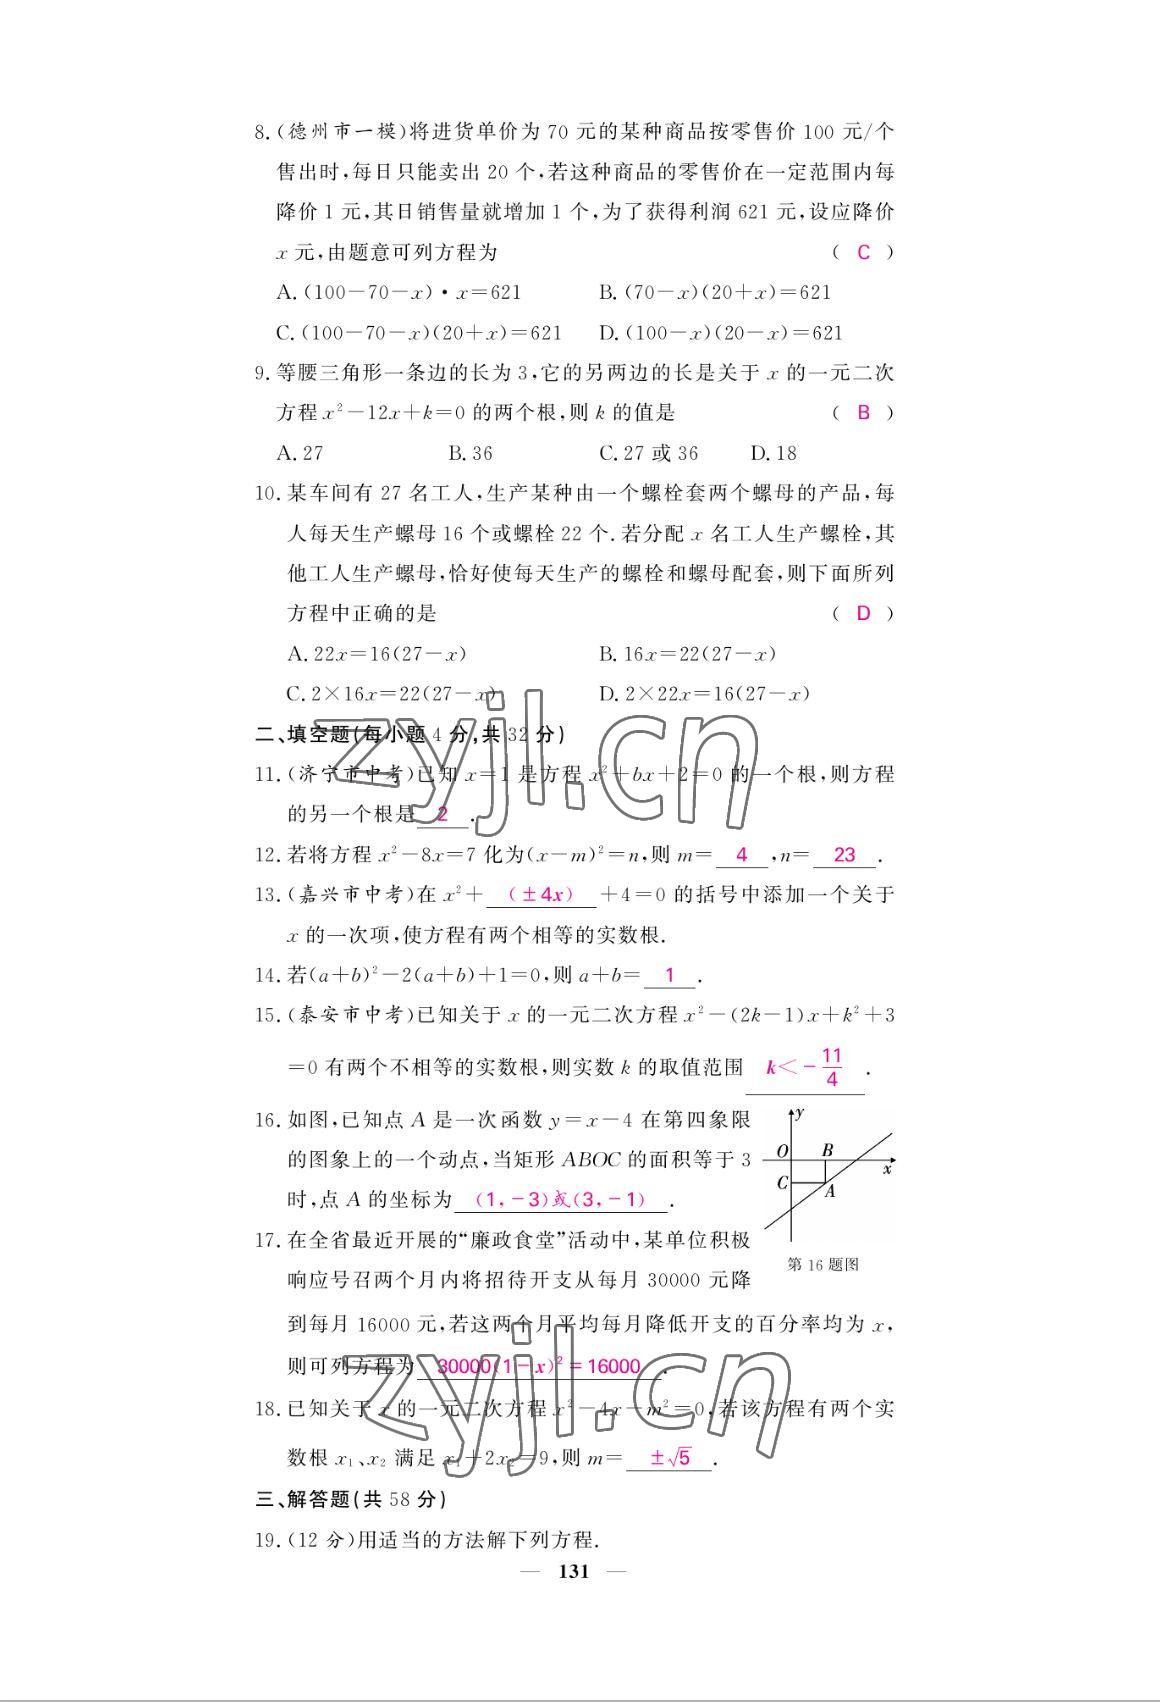 8.(德州市一模)将进货单价为 70 元的某种商品按零售价 100 元/个
售出时,每日只能卖出 20 个,若这种商品的零售价在一定范围内每
降价 1 元,其日销售量就增加 1 个,为了获得利润 621 元,设应降价
x 元,由题意可列方程为 ( C )
A.(100-70-x)·x=621 B.(70-x)(20+x)=621
C.(100-70-x)(20+x)=621 D.(100-x)(20-x)=621
9.等腰三角形一条边的长为 3,它的另两边的长是关于 x 的一元二次
方程 x²-12x+k=0 的两个根,则 k 的值是 ( B )
A.27 B.36 C.27 或 36 D.18
10.某车间有 27 名工人,生产某种由一个螺栓套两个螺母的产品,每
人每天生产螺母 16 个或螺栓 22 个.若分配 x 名工人生产螺栓,其
他工人生产螺母,恰好使每天生产的螺栓和螺母配套,则下面所列
方程中正确的是 ( D )
A.22x=16(27-x) B.16x=22(27-x)
C.2×16x=22(27-x) D.2×22x=16(27-x)
二、填空题(每小题 4 分,共 32 分)
11.(济宁市中考)已知 x=1 是方程 x²+bx+2=0 的一个根,则方程
的另一个根是 2 .
12.若将方程 x²-8x=7 化为(x-m)²=n,则 m= 4 ,n= 23 .
13.(嘉兴市中考)在 x²+ (±4x) +4=0 的括号中添加一个关于
x 的一次项,使方程有两个相等的实数根.
14.若(a+b)²-2(a+b)+1=0,则 a+b= 1 .
15.(泰安市中考)已知关于 x 的一元二次方程 x²-(2k-1)x+k²+3
=0 有两个不相等的实数根,则实数 k 的取值范围 k<-11/4 .
16.如图,已知点 A 是一次函数 y=x-4 在第四象限
的图象上的一个动点,当矩形 ABOC 的面积等于 3
时,点 A 的坐标为 (1,-3)或(3,-1) .
y
O B
x
C
A
第 16 题图
17.在全省最近开展的“廉政食堂”活动中,某单位积极
响应号召两个月内将招待开支从每月 30000 元降
到每月 16000 元,若这两个月平均每月降低开支的百分率均为 x,
则可列方程为 30000(1-x)²=16000 .
18.已知关于 x 的一元二次方程 x²-4x-m²=0,若该方程有两个实
数根 x₁、x₂ 满足 x₁+2x₂=9,则 m= ±√5 .
三、解答题(共 58 分)
19.(12 分)用适当的方法解下列方程.
— 131 —
zyjl.cn
zyjl.cn